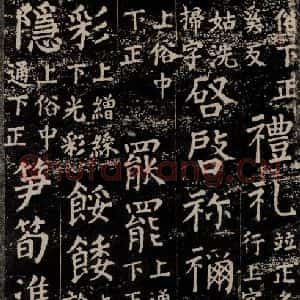 下正
禮礼
竝正
行上
姑洗
掃字
啓啓祢禰
上俗中
下正
罷罷
上
下
彩
上繒綵
下光彩
餒餧
隱
上俗中
通下正
笋筍
shufawang.cn